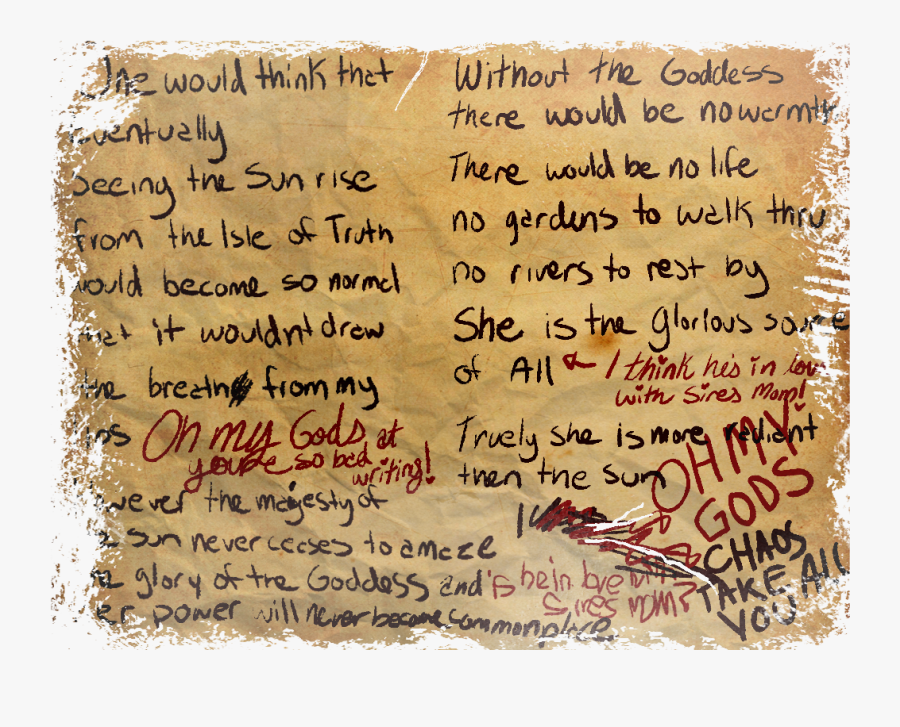 One would think that
eventually
seeing the Sun rise
from the Isle of Truth
would become so normal
that it wouldnt draw
the breath from my
lips
Oh my Gods at
your so bad
writing!
However the majesty of
the Sun never ceases to amaze
the glory of the Goddess and
her power will never become commonplace.
Without the Goddess
there would be no warmth
There would be no life
no gardens to walk thru
no rivers to rest by
She is the glorious source
of All
I think hes in love
with Sires Mom!
Truely she is more radiant
then the Sun
OH MY
GODS
is he in love with
Sires MOM?
CHAOS
TAKE ALL
YOU